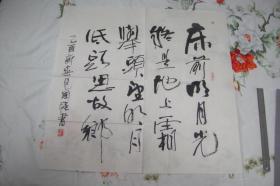 床前明月光
疑是地上霜
舉頭望明月
低頭思故鄉
書